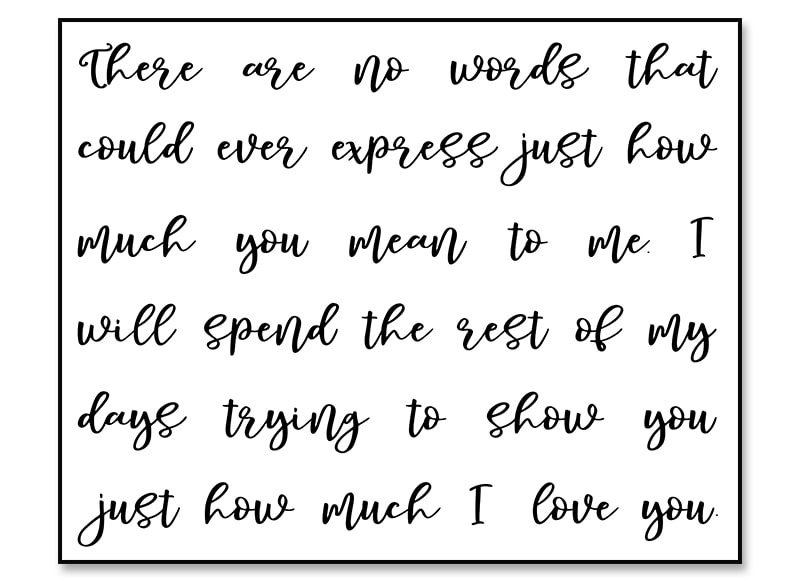 There are no words that
could ever express just how
much you mean to me. I
will spend the rest of my
days trying to show you
just how much I love you.